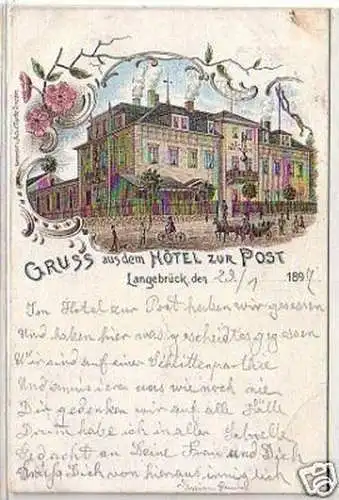 GRUSS aus dem HÔTEL ZUR POST
Langebrück, den 29./1 1897
Im Hotel zur Post haben wir gesessen
Und haben hier was gescheidtes gegessen
Wir sind auf einer Schlittenparthie
Und amüsieren uns wie noch nie
Die gedenken wir auf alle Fälle
Drum habe ich in aller Schnelle
Gedacht an Deine Frau und Dich
Dich von hieraus innig lich